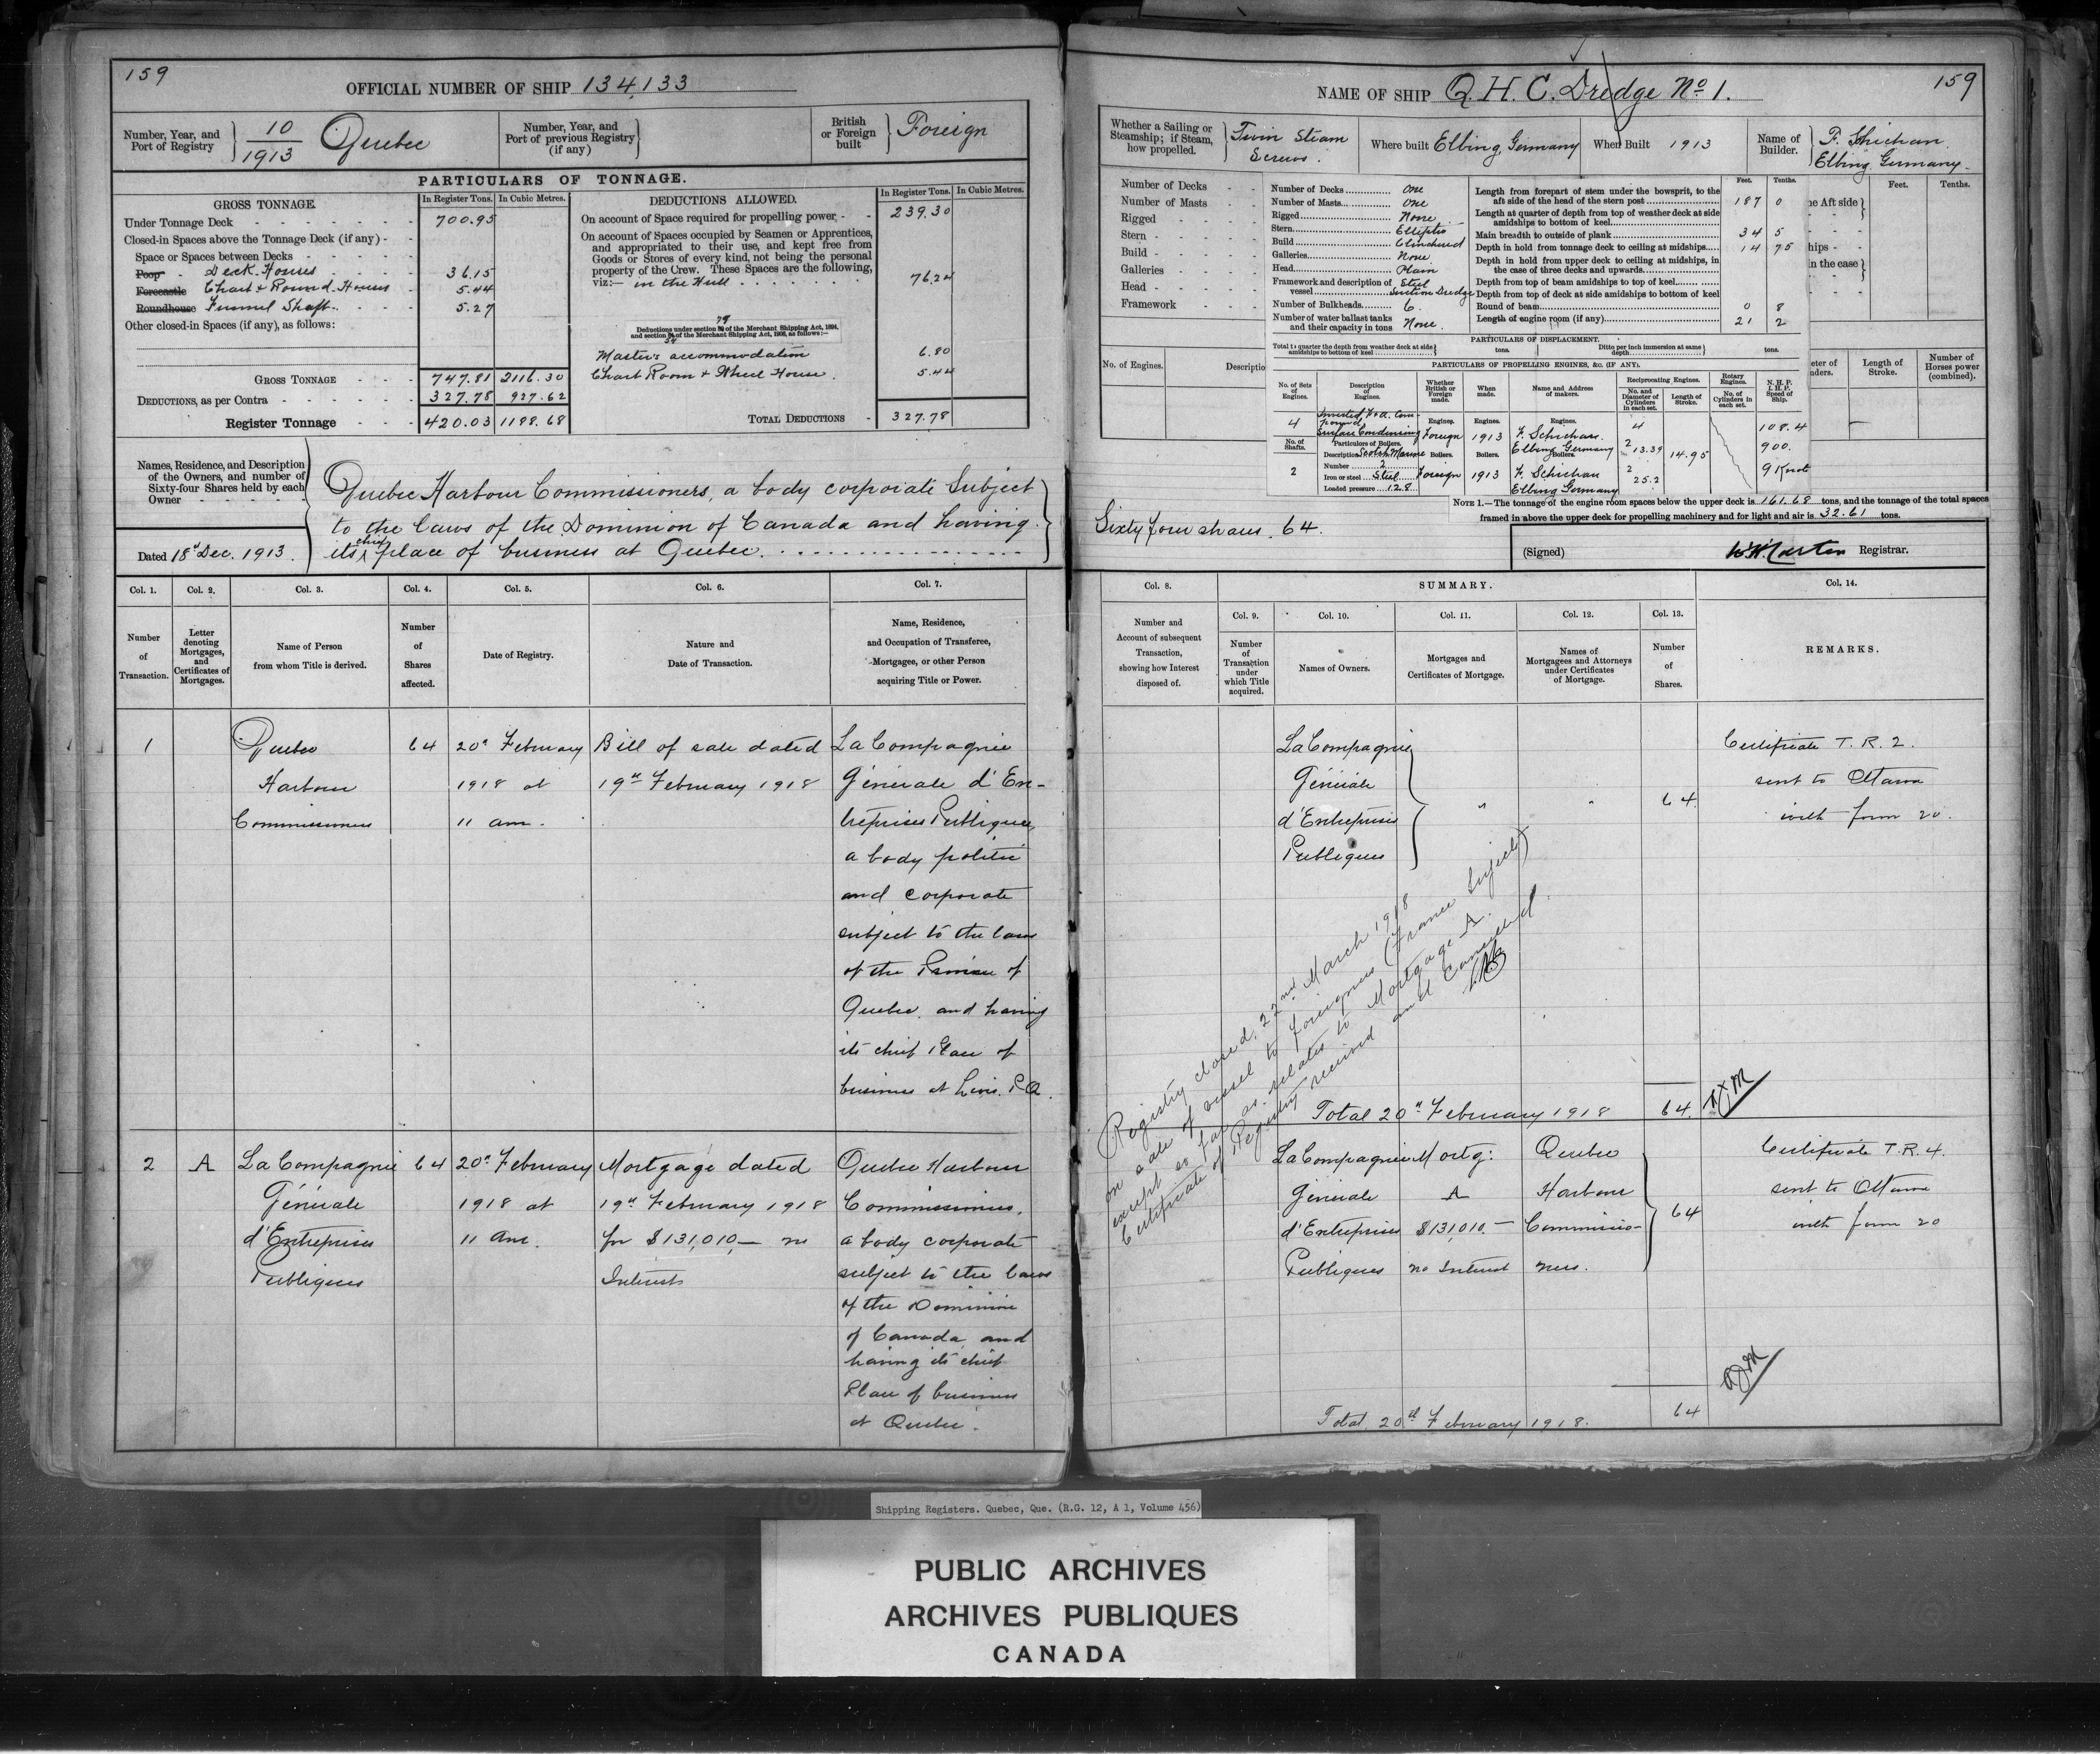 159
OFFICIAL NUMBER OF SHIP 134,133
Number, Year, and Port of Registry 10/1913 Quebec
Number, Year, and Port of previous Registry (if any)
British or Foreign built Foreign
PARTICULARS OF TONNAGE.
GROSS TONNAGE. In Register Tons. In Cubic Metres.
Under Tonnage Deck 700.95
Closed-in Spaces above the Tonnage Deck (if any)
Space or Spaces between Decks
Poop Deck Houses 36.15
Forecastle Chart & Round Houses 5.44
Roundhouse Funnel Shaft 5.27
Other closed-in Spaces (if any), as follows:
GROSS TONNAGE 747.81 2116.30
DEDUCTIONS, as per Contra 327.78 927.62
Register Tonnage 420.03 1188.68
DEDUCTIONS ALLOWED. In Register Tons. In Cubic Metres.
On account of Space required for propelling power 239.30
On account of Spaces occupied by Seamen or Apprentices,
and appropriated to their use, and kept free from
Goods or Stores of every kind, not being the personal
property of the Crew. These Spaces are the following,
viz:— in the Hull 76.24
Deductions under section 79 of the Merchant Shipping Act, 1894,
and section 54 of the Merchant Shipping Act, 1906, as follows:—
Master's accommodation 6.80
Chart Room & Wheel House 5.44
TOTAL DEDUCTIONS 327.78
Names, Residence, and Description
of the Owners, and number of
Sixty-four Shares held by each
Owner
Dated 18th Dec. 1913.
Quebec Harbour Commissioners, a body corporate Subject
to the laws of the Dominion of Canada and having
its chief place of business at Quebec.
Col. 1. Col. 2. Col. 3. Col. 4. Col. 5. Col. 6. Col. 7.
Number of Transaction.
Letter denoting Mortgages, and Certificates of Mortgages.
Name of Person from whom Title is derived.
Number of Shares affected.
Date of Registry.
Nature and Date of Transaction.
Name, Residence, and Occupation of Transferee, Mortgagee, or other Person acquiring Title or Power.
1 Quebec 64 20th February Bill of sale dated La Compagnie
Harbour 1918 at 19th February 1918 Générale d'En-
Commissioners 11 am. treprises Publiques,
a body politic
and corporate
subject to the laws
of the Province of
Quebec, and having
its chief Place of
business at Levis. P.Q.
2 A La Compagnie 64 20th February Mortgage dated Quebec Harbour
Générale 1918 at 19th February 1918 Commissioners,
d'Entreprises 11 am. for $131,010.— no a body corporate
Publiques Interest subject to the laws
of the Dominion
of Canada and
having its chief
Place of business
at Quebec.
NAME OF SHIP Q. H. C. Dredge No 1.
159
Whether a Sailing or Steamship; if Steam, how propelled. Twin Steam Screws.
Where built Elbing, Germany
When Built 1913
Name of Builder. F. Schichau. Elbing, Germany.
Number of Decks
Number of Masts
Rigged
Stern
Build
Galleries
Head
Framework
No. of Engines.
Descriptio
Number of Decks One
Number of Masts One
Rigged None
Stern Elliptic
Build Clinched
Galleries None
Head Plain
Framework and description of vessel Steel Suction Dredge
Number of Bulkheads 6.
Number of water ballast tanks and their capacity in tons None.
Feet. Tenths.
Length from forepart of stem under the bowsprit, to the
aft side of the head of the stern post 187 0
Length at quarter of depth from top of weather deck at side
amidships to bottom of keel
Main breadth to outside of plank 34 5
Depth in hold from tonnage deck to ceiling at midships 14 75
Depth in hold from upper deck to ceiling at midships, in
the case of three decks and upwards
Depth from top of beam amidships to top of keel
Depth from top of deck at side amidships to bottom of keel
Round of beam 0 8
Length of engine room (if any) 21 2
Feet. Tenths.
he Aft side
hips
in the case
eter of nders.
Length of Stroke.
Number of Horses power (combined).
PARTICULARS OF DISPLACEMENT.
Total to quarter the depth from weather deck at side amidships to bottom of keel tons. Ditto per inch immersion at same depth tons.
PARTICULARS OF PROPELLING ENGINES, &c. (IF ANY).
No. of Sets of Engines.
Description of Engines.
Whether British or Foreign made.
When made.
Name and Address of makers.
Reciprocating Engines.
No. and Diameter of Cylinders in each set.
Length of Stroke.
Rotary Engines.
No. of Cylinders in each set.
N. H. P. I. H. P. Speed of Ship.
4 Inverted F & A. Compound Surface Condensing
Engines. Foreign
Engines. 1913
Engines. F. Schichau. Elbing Germany
4
2 13.39
2 25.2
14.95
108.4
900.
9 Knots
No. of Shafts. 2
Particulars of Boilers.
Description Scotch Marine
Number 2
Iron or steel Steel
Loaded pressure 128
Boilers. Foreign
Boilers. 1913
Boilers. F. Schichau Elbing Germany
NOTE 1.—The tonnage of the engine room spaces below the upper deck is 161.68 tons, and the tonnage of the total spaces
framed in above the upper deck for propelling machinery and for light and air is 32.61 tons.
Sixty four shares. 64.
(Signed) Registrar.
Col. 8. SUMMARY. Col. 14.
Col. 9. Col. 10. Col. 11. Col. 12. Col. 13.
Number and Account of subsequent Transaction, showing how Interest disposed of.
Number of Transaction under which Title acquired.
Names of Owners.
Mortgages and Certificates of Mortgage.
Names of Mortgagees and Attorneys under Certificates of Mortgage.
Number of Shares.
REMARKS.
La Compagnie Certificate T.R. 2.
Générale sent to Ottawa
d'Entreprises " " 64 with form 20.
Publiques
Registry closed, 22nd March 1918
on sale of vessel to foreigners (France Subject)
except so far as relates to Mortgage A.
Certificate of Registry received and Cancelled.
Total 20th February 1918 64.
La Compagnie Mortg: Quebec Certificate T.R. 4.
Générale A Harbour sent to Ottawa
d'Entreprises $131,010.— Commissio- 64 with form 20
Publiques no Interest ners.
Total 20th February 1918. 64
Shipping Registers. Quebec, Que. (R.G. 12, A 1, Volume 456)
PUBLIC ARCHIVES
ARCHIVES PUBLIQUES
CANADA